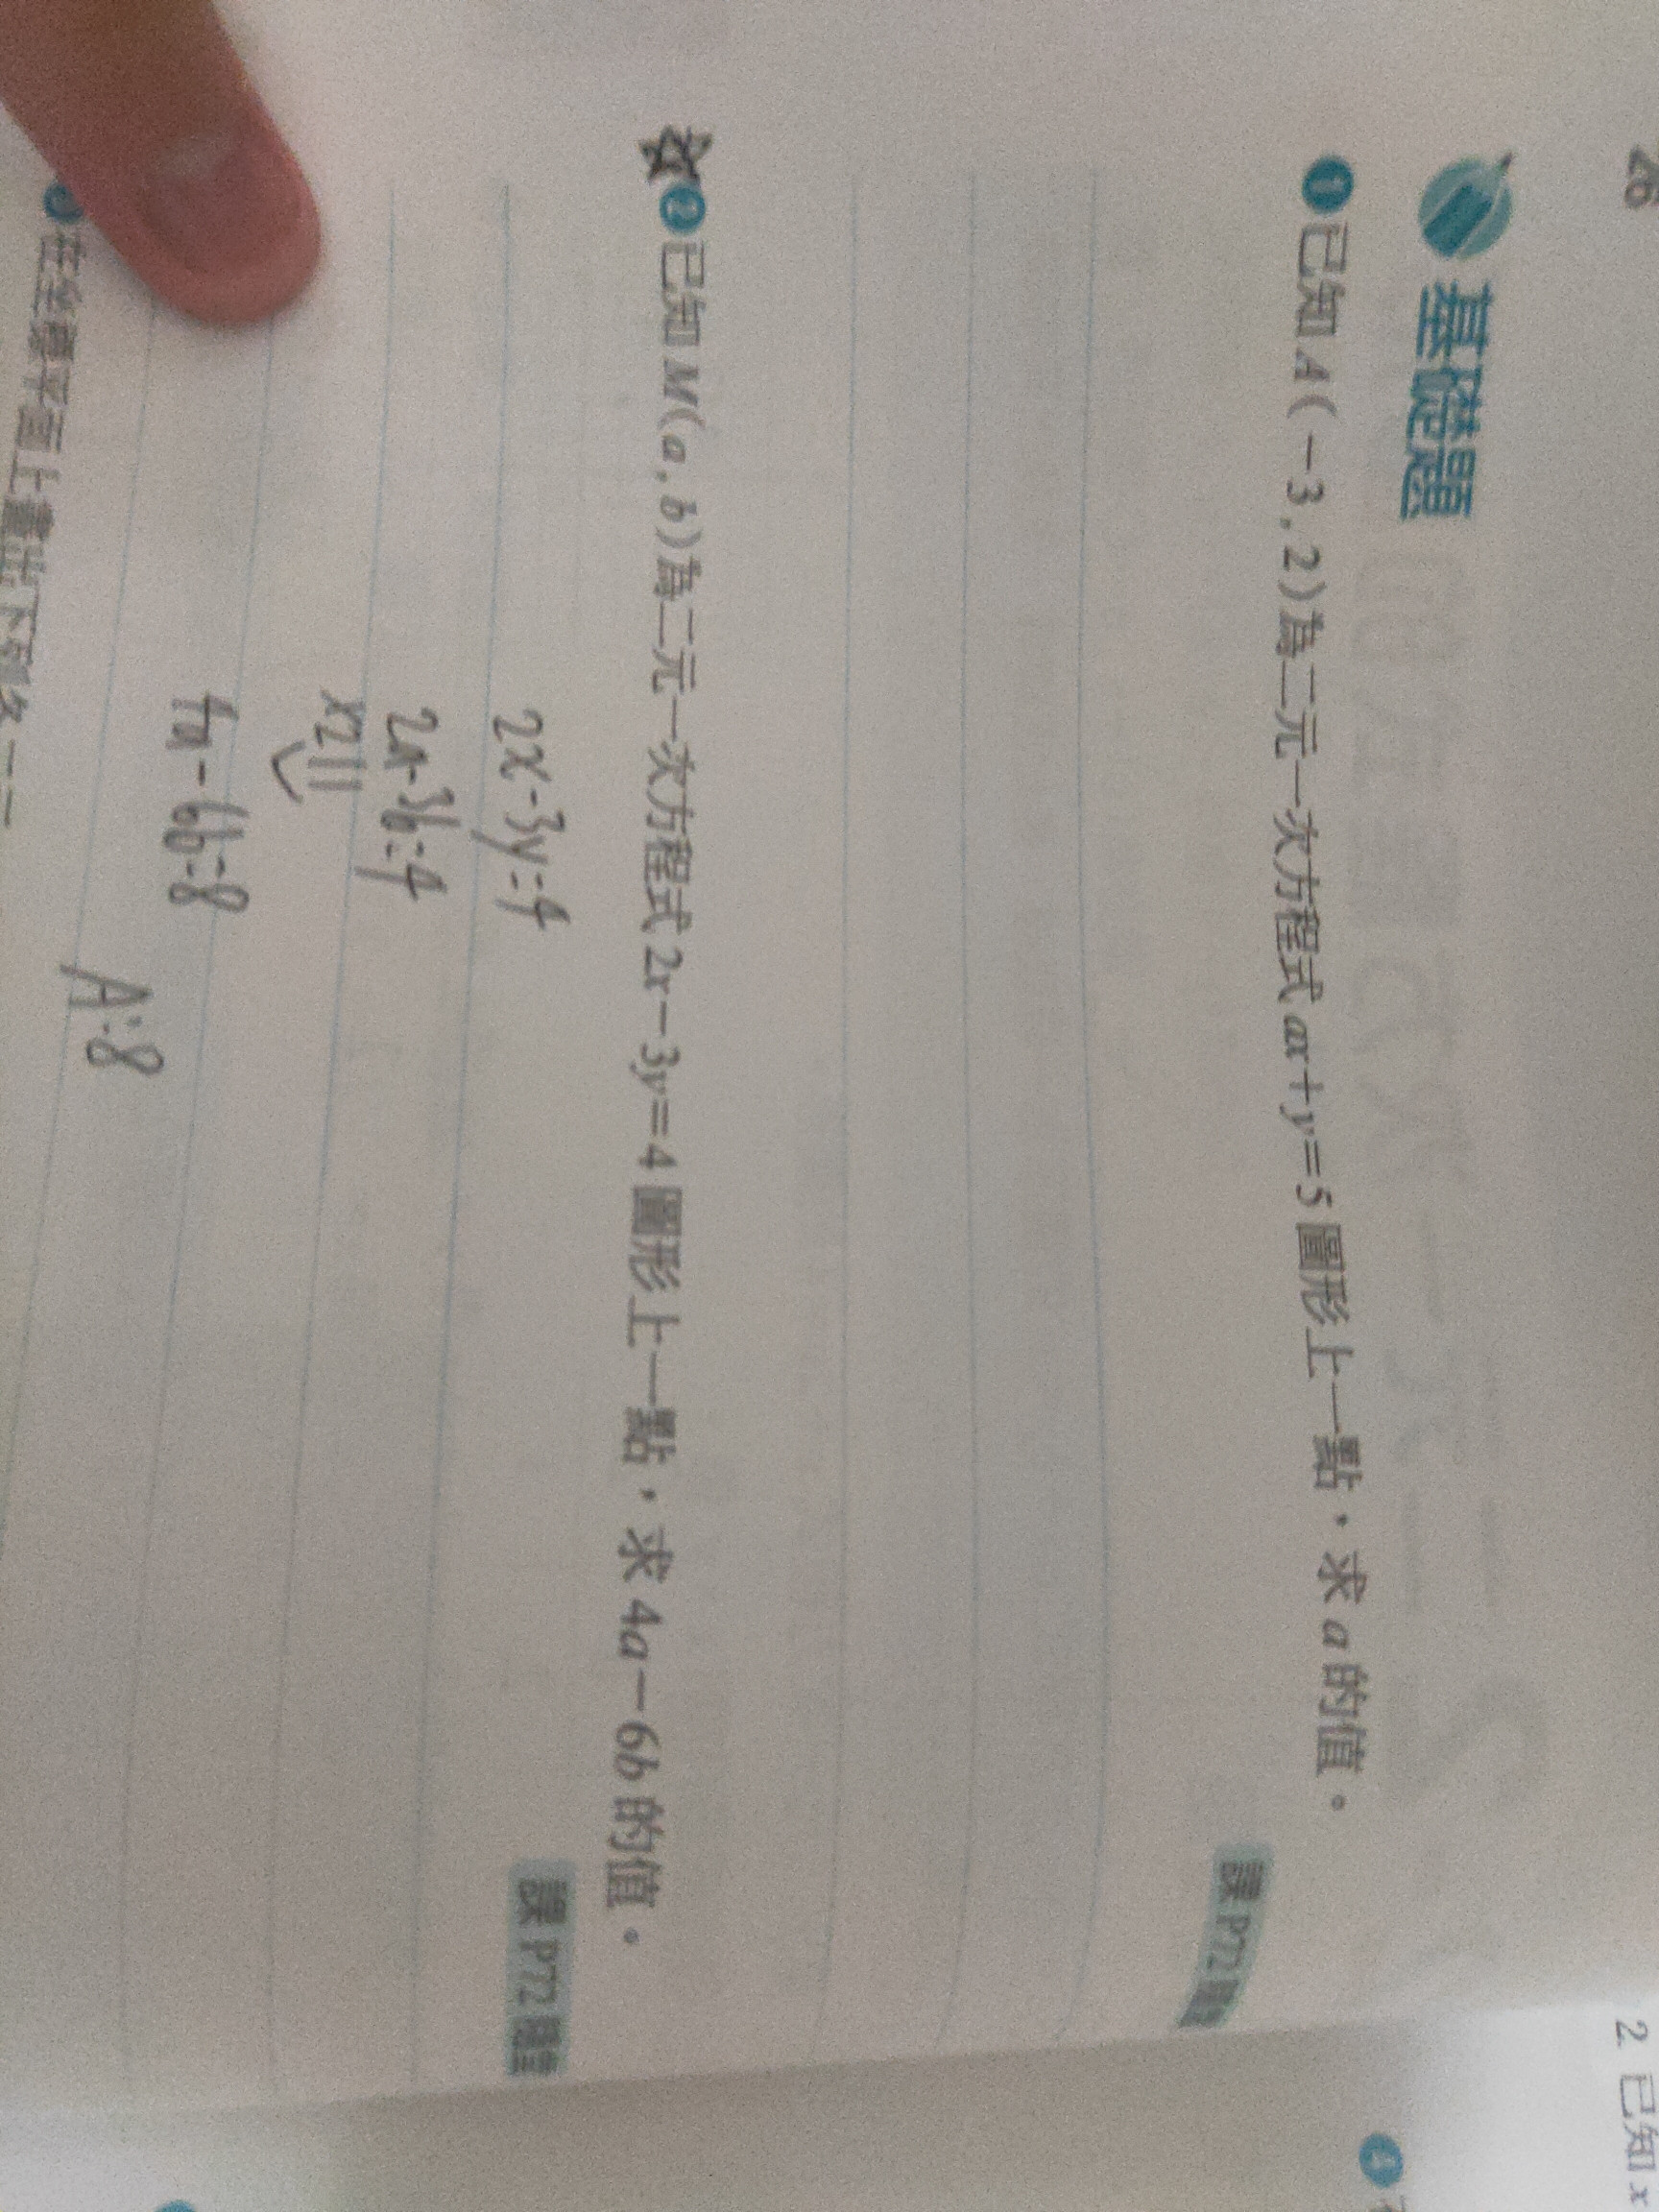 26
基礎題
1 已知 A(-3, 2)為二元一次方程式 ax+y=5 圖形上一點,求 a 的值。
課 P72 隨
2 已知 M(a, b)為二元一次方程式 2x-3y=4 圖形上一點,求 4a-6b 的值。
課 P72 隨
2x-3y=4
2a-3b=4
x2
4a-6b=8
A:8
在坐標平面上畫出下列
2 已知 x
4